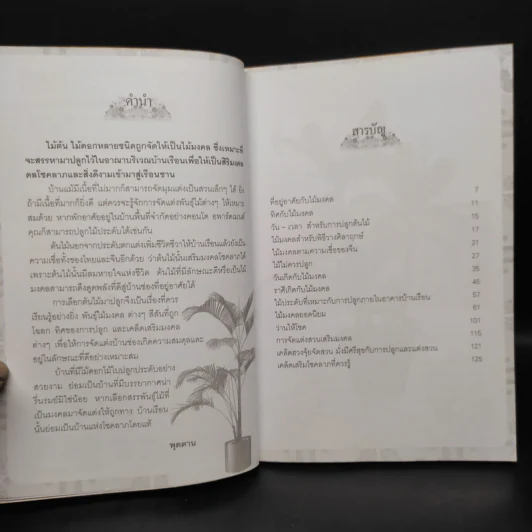 คำนำ
ไม้ต้น ไม้ดอกหลายชนิดถูกจัดให้เป็นไม้มงคล ซึ่งเหมาะที่
จะสรรหามาปลูกไว้ในอาณาบริเวณบ้านเรือนเพื่อให้เป็นสิริมงคล
ดลโชคลาภและสิ่งดีงามเข้ามาสู่เรือนชาน
บ้านแม้มีเนื้อที่ไม่มากก็สามารถจัดมุมแต่งเป็นสวนเล็กๆ ได้ ยิ่ง
ถ้ามีเนื้อที่มากก็ยิ่งดี แต่ควรจะรู้จักการจัดแต่งพันธุ์ไม้ต่างๆ ให้เหมาะ
สมด้วย หากพักอาศัยอยู่ในบ้านพื้นที่จำกัดอย่างคอนโด อพาร์ตเมนต์
คุณก็สามารถปลูกไม้ประดับได้เช่นกัน
ต้นไม้นอกจากประดับตกแต่งเพิ่มชีวิตชีวาให้บ้านเรือนแล้วยังมี
ความเชื่อทั้งของไทยและจีนอีกด้วย ว่าต้นไม้นั้นเสริมมงคลโชคลาภได้
เพราะต้นไม้นั้นมีลมหายใจแห่งชีวิต ต้นไม้ที่มีลักษณะดีหรือเป็นไม้
มงคลสามารถดึงดูดพลังที่ดีสู่บ้านช่องที่อยู่อาศัยได้
การเลือกต้นไม้มาปลูกจึงเป็นเรื่องที่ควร
เรียนรู้อย่างยิ่ง พันธุ์ไม้มงคล ต่างๆ สีสันที่ถูก
โฉลก ทิศของการปลูก และเคล็ดเสริมมงคล
ต่างๆ เพื่อให้การจัดแต่งบ้านช่องเกิดความสมดุลและ
อยู่ในลักษณะที่ดีอย่างเหมาะสม
บ้านที่มีไม้ดอกไม้ใบปลูกประดับอย่าง
สวยงาม ย่อมเป็นบ้านที่มีบรรยากาศน่า
รื่นรมย์มิใช่น้อย หากเลือกสรรพันธุ์ไม้ที่
เป็นมงคลมาจัดแต่งให้ถูกทาง บ้านเรือน
นั้นย่อมเป็นบ้านแห่งโชคลาภโดยแท้
พุดตาน
สารบัญ
ที่อยู่อาศัยกับไม้มงคล 7
ทิศกับไม้มงคล 11
วัน - เวลา สำหรับการปลูกต้นไม้ 15
ไม้มงคลสำหรับพิธีวางศิลาฤกษ์ 17
ไม้มงคลตามความเชื่อของจีน 21
ไม้ไม่ควรปลูก 27
วันเกิดกับไม้มงคล 31
ราศีเกิดกับไม้มงคล 45
ไม้ประดับที่เหมาะกับการปลูกภายในอาคารบ้านเรือน 57
ไม้มงคลยอดนิยม 61
ว่านให้โชค 101
การจัดแต่งสวนเสริมมงคล 115
เคล็ดฮวงจุ้ยจัดสวน มั่งมีศรีสุขกับการปลูกและแต่งสวน 121
เคล็ดเสริมโชคลาภที่ควรรู้ 125